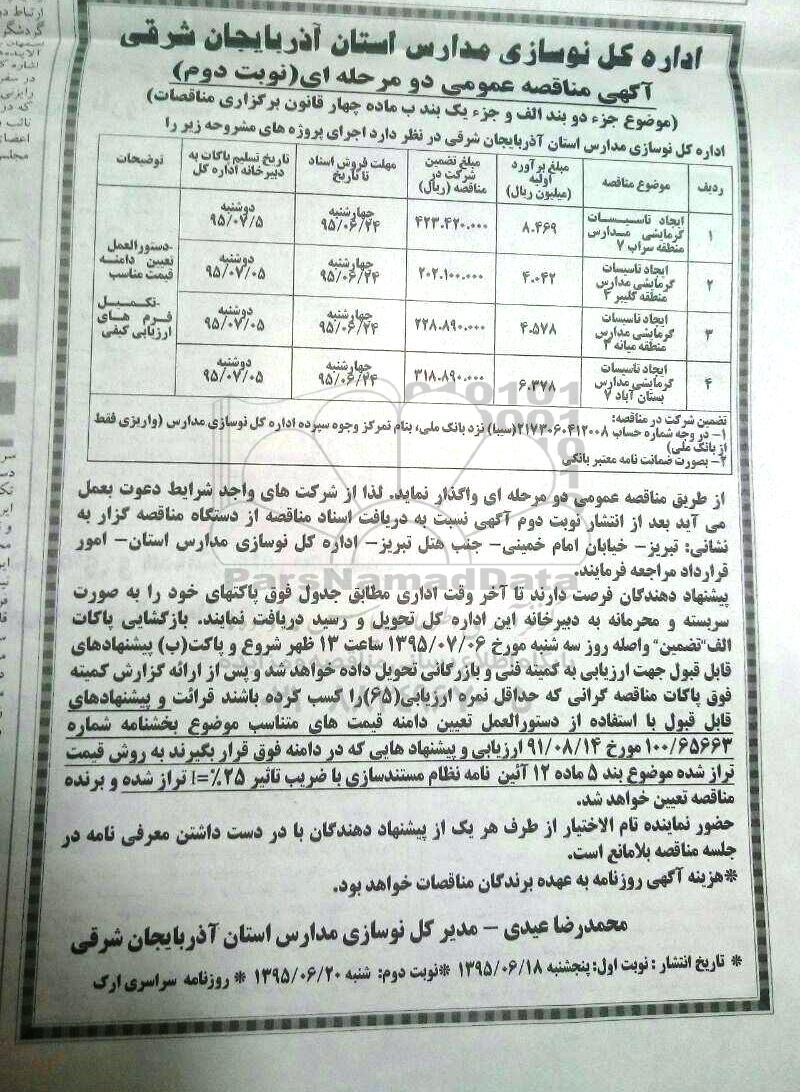 اداره کل نوسازی مدارس استان آذربایجان شرقی
آگهی مناقصه عمومی دو مرحله ای(نوبت دوم)
(موضوع جزء دو بند الف و جزء یک بند ب ماده چهار قانون برگزاری مناقصات)
اداره کل نوسازی مدارس استان آذربایجان شرقی در نظر دارد اجرای پروژه های مشروحه زیر را
ردیف	موضوع مناقصه	مبلغ برآورد اولیه (میلیون ریال)	مبلغ تضمین شرکت در مناقصه (ریال)	مهلت فروش اسناد تا تاریخ	تاریخ تسلیم پاکات به دبیرخانه اداره کل	توضیحات
۱	ایجاد تاسیسات گرمایشی مدارس منطقه سراب ۷	۸.۴۶۹	۴۲۳.۴۲۰.۰۰۰	چهارشنبه ۹۵/۰۶/۲۴	دوشنبه ۹۵/۰۷/۵
۲	ایجاد تاسیسات گرمایشی مدارس منطقه کلیبر ۴	۴.۰۴۲	۲۰۲.۱۰۰.۰۰۰	چهارشنبه ۹۵/۰۶/۲۴	دوشنبه ۹۵/۰۷/۰۵
۳	ایجاد تاسیسات گرمایشی مدارس منطقه میانه ۲	۴.۵۷۸	۲۲۸.۸۹۰.۰۰۰	چهارشنبه ۹۵/۰۶/۲۴	دوشنبه ۹۵/۰۷/۰۵
۴	ایجاد تاسیسات گرمایشی مدارس بستان آباد ۷	۶.۳۷۸	۳۱۸.۸۹۰.۰۰۰	چهارشنبه ۹۵/۰۶/۲۴	دوشنبه ۹۵/۰۷/۰۵
-دستورالعمل
تعیین دامنه
قیمت مناسب
-تکمیل
فرم های
ارزیابی کیفی
تضمین شرکت در مناقصه:
۱- در وجه شماره حساب ۲۱۷۳۰۶۰۴۱۲۰۰۸(سیبا) نزد بانک ملی، بنام تمرکز وجوه سپرده اداره کل نوسازی مدارس (واریزی فقط
از بانک ملی)
۲- بصورت ضمانت نامه معتبر بانکی
از طریق مناقصه عمومی دو مرحله ای واگذار نماید. لذا از شرکت های واجد شرایط دعوت بعمل
می آید بعد از انتشار نوبت دوم آگهی نسبت به دریافت اسناد مناقصه از دستگاه مناقصه گزار به
نشانی: تبریز- خیابان امام خمینی- جنب هتل تبریز- اداره کل نوسازی مدارس استان- امور
قرارداد مراجعه فرمایند.
پیشنهاد دهندگان فرصت دارند تا آخر وقت اداری مطابق جدول فوق پاکتهای خود را به صورت
سربسته و محرمانه به دبیرخانه این اداره کل تحویل و رسید دریافت نمایند. بازگشایی پاکات
الف"تضمین" واصله روز سه شنبه مورخ ۱۳۹۵/۰۷/۰۶ ساعت ۱۳ ظهر شروع و پاکت(ب) پیشنهادهای
قابل قبول جهت ارزیابی به کمیته فنی و بازرگانی تحویل داده خواهد شد و پس از ارائه گزارش کمیته
فوق پاکات مناقصه گرانی که حداقل نمره ارزیابی(۶۵)را کسب کرده باشند قرائت و پیشنهادهای
قابل قبول با استفاده از دستورالعمل تعیین دامنه قیمت های متناسب موضوع بخشنامه شماره
۱۰۰/۶۵۶۶۳ مورخ ۹۱/۰۸/۱۴ ارزیابی و پیشنهاد هایی که در دامنه فوق قرار بگیرند به روش قیمت
تراز شده موضوع بند ۵ ماده ۱۲ آئین نامه نظام مستندسازی با ضریب تاثیر ۲۵٪=i تراز شده و برنده
مناقصه تعیین خواهد شد.
حضور نماینده تام الاختیار از طرف هر یک از پیشنهاد دهندگان با در دست داشتن معرفی نامه در
جلسه مناقصه بلامانع است.
*هزینه آگهی روزنامه به عهده برندگان مناقصات خواهد بود.
محمدرضا عیدی - مدیر کل نوسازی مدارس استان آذربایجان شرقی
* تاریخ انتشار : نوبت اول: پنجشنبه ۱۳۹۵/۰۶/۱۸ *نوبت دوم: شنبه ۱۳۹۵/۰۶/۲۰ * روزنامه سراسری ارک
ParsNamadData